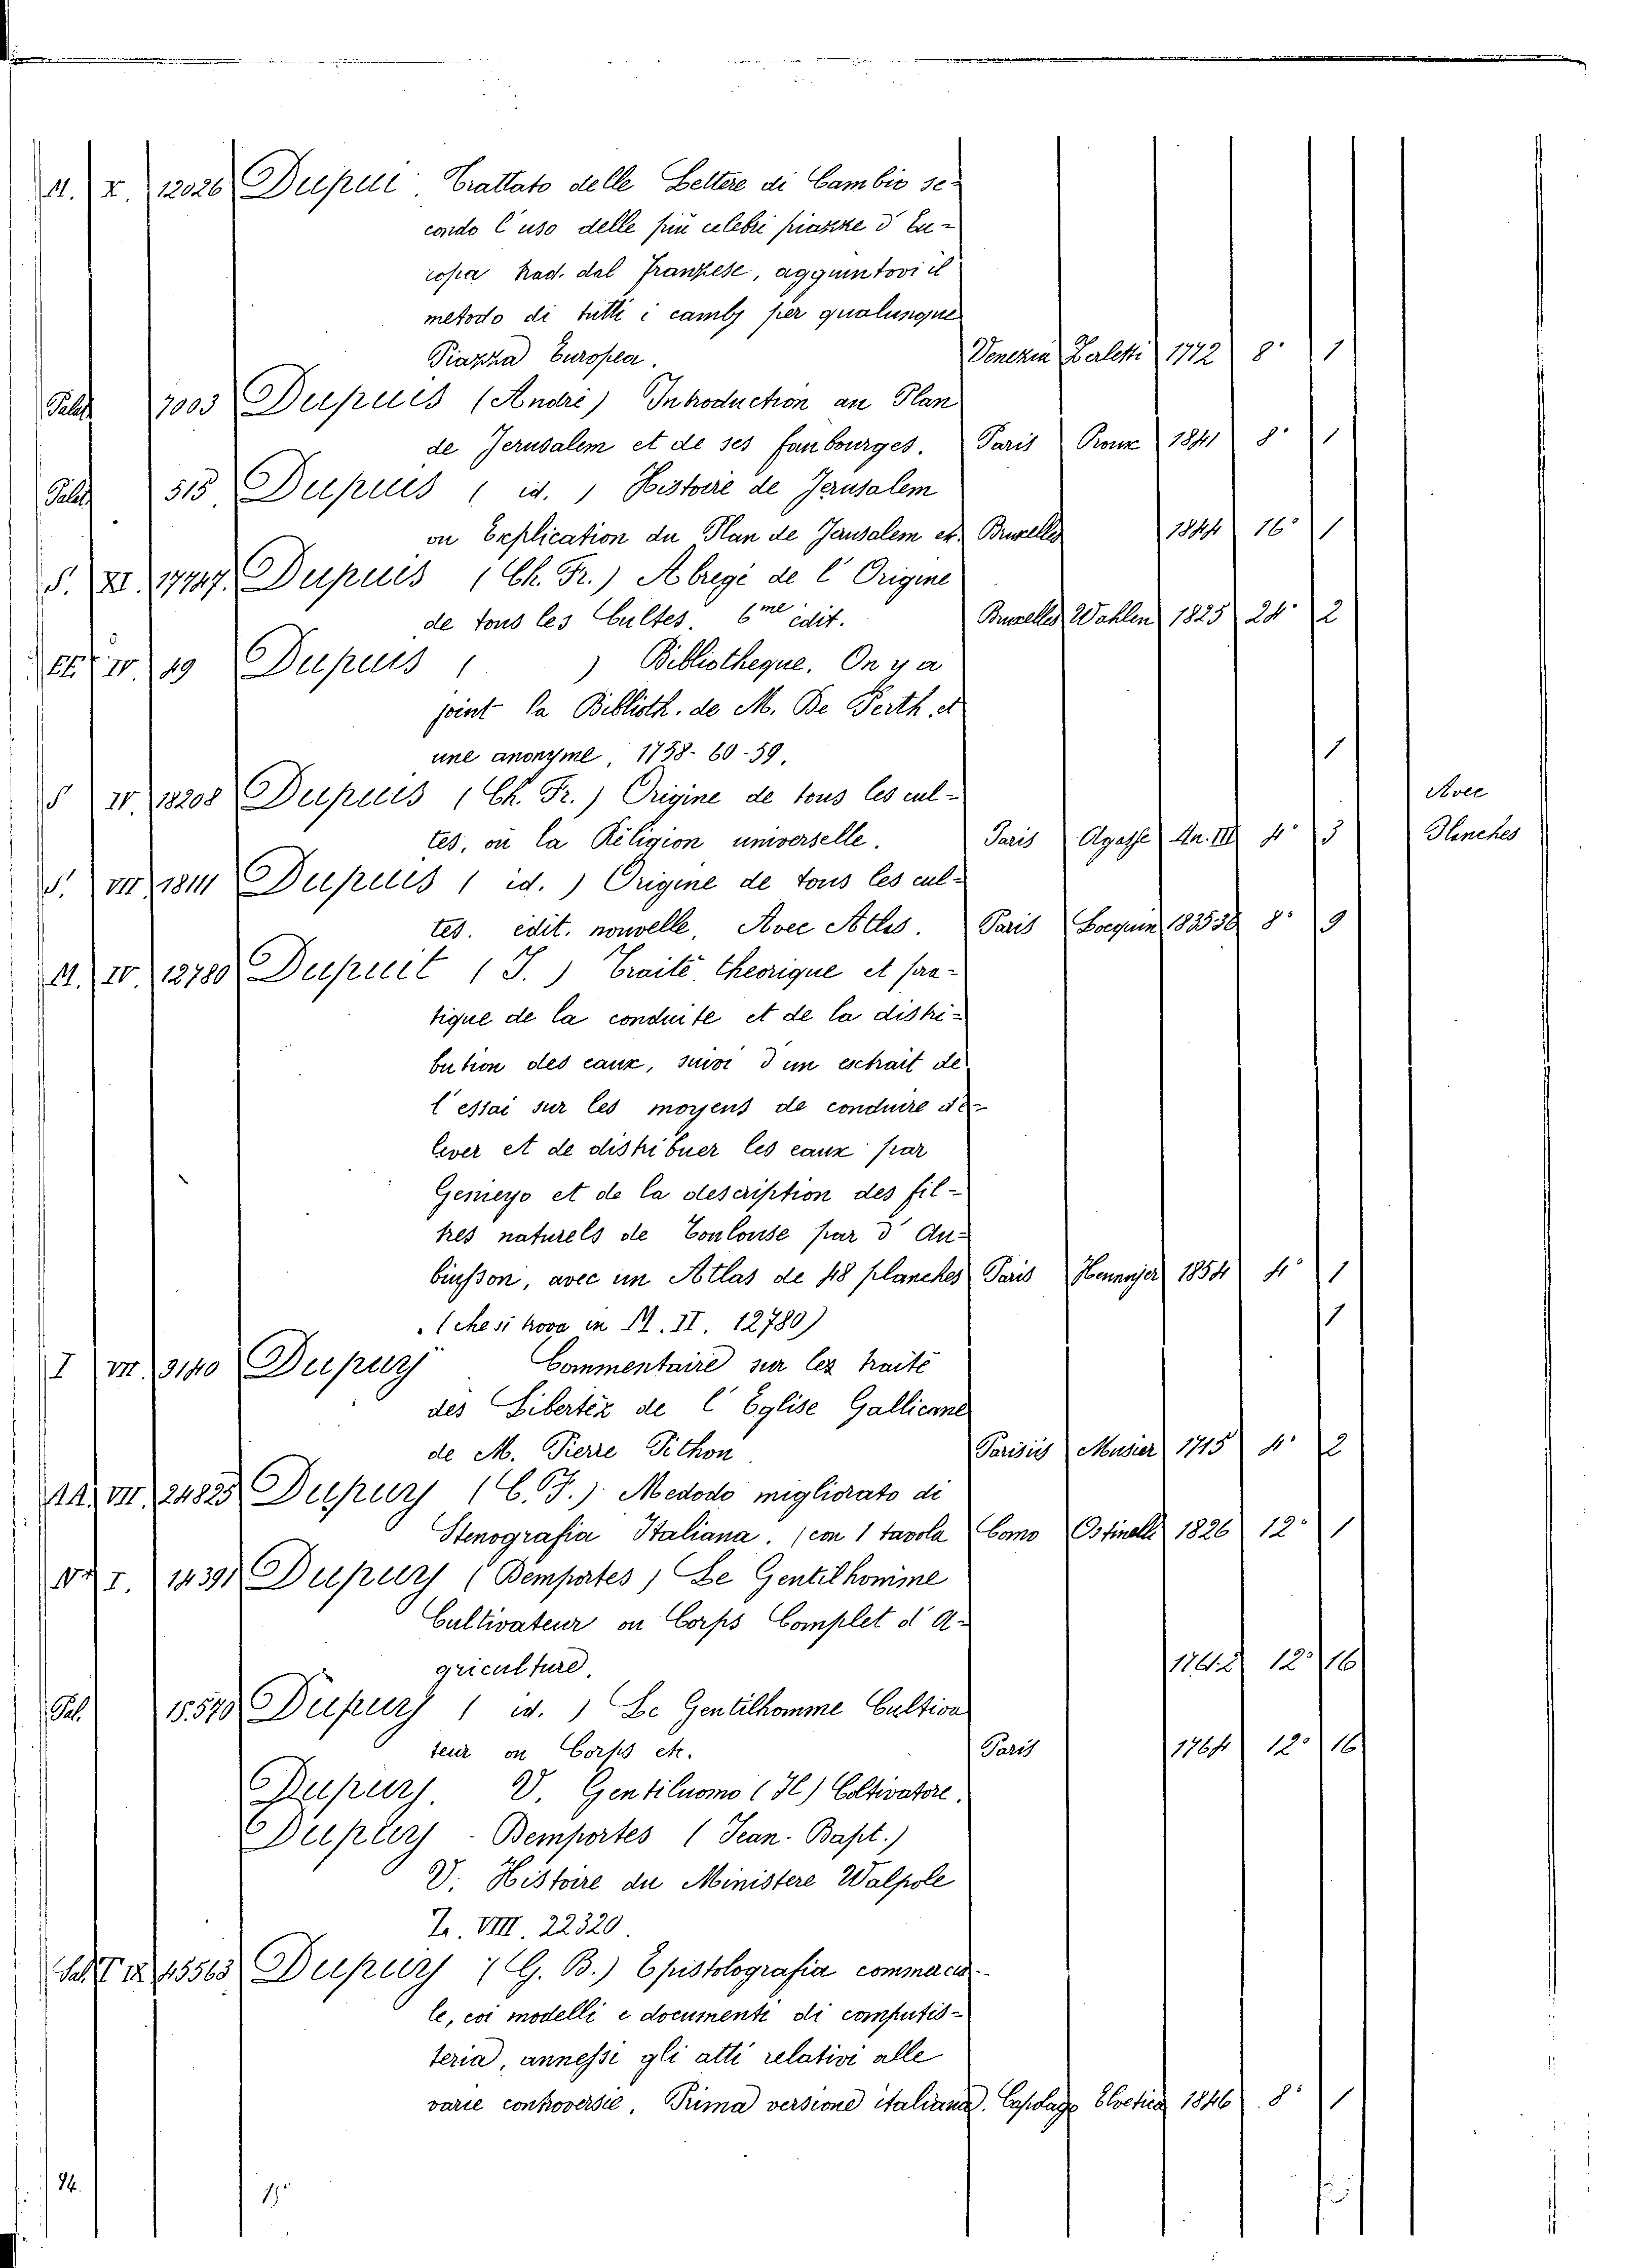 M. X. 12026 Dupui. Trattato delle Lettere di Cambio se-
condo l'uso delle più celebri piazze d'Eu-
ropa trad. dal Franzese, aggiuntovi il
metodo di tutti i camby per qualunque
Piazza Europea. Venezia Zerletti 1772 8° 1
Palat. 7003 Dupuis (André) Introduction au Plan
de Jerusalem et de ses faubourges. Paris 1841 8° 1
Palat. 515 Dupuis (id.) Histoire de Jerusalem
ou Explication du Plan de Jerusalem et. Bruxelles 1844 16° 1
S. XI. 17747. Dupuis (Ch. Fr.) Abregé de l'Origine
de tous les Cultes. 6me edit. Bruxelles Wahlen 1825 24° 2
IV. 49 Dupuis ( ) Bibliotheque. On y a
joint la Biblioth. de M. De Perth. et
une anonyme, 1758-60-59. 1
S IV. 18208 Dupuis (Ch. Fr.) Origine de tous les cul- Avec
tes, ou la Religion universelle. Paris Agasse An. III 4° 3 Planches
S. VII 18111 Dupuis (id.) Origine de tous les cul-
tes. edit. nouvelle, Avec Atlas. Paris 183536 8° 9
M. IV. 12780 Dupuit (J.) Traité theorique et pra-
tique de la conduite et de la distri-
bution des eaux, suivi d'un esctrait de
l'essai sur les moyens de conduire d'e-
lever et de distribuer les eaux par
Genieys et de la description des fil-
tres naturels de Toulouse par d'Au-
buisson, avec un Atlas de 48 planches Paris 1854 4° 1
(che si trova in M. II. 12780) 1
I VII. 3140 Dupuy Commentaire sur lez traité
des Libertéz de l'Eglise Gallicane
de M. Pierre Pithon. Parisiis Musier 1715 4° 2
AA. VII. 24825 Dupuy (C. F.) Medodo migliorato di
Stenografia Italiana. (con 1 tavola Como Ostinelli 1826 12° 1
I. 14391 Dupuy (Demportes) Le Gentilhomme
Cultivateur ou Corps Complet d'A-
griculture. 1761.2 12° 16
Pal. 15.570 Dupuy (id.) Le Gentilhomme Cultiva
teur ou Corps etc. Paris 1764 12° 16
Dupuy. V. Gentiluomo (Il) Coltivatore.
Dupuy - Demportes (Jean-Bapt.)
V. Histoire du Ministere Walpole
Z. VIII. 22320.
Sal. T IX 45563 Dupuy (G. B.) Epistolografia commercia-
le, coi modelli e documenti di computis-
teria, annessi gli atti relativi alle
varie controversie. Prima versione italiana. Capolago Elvetica 1846 8° 1